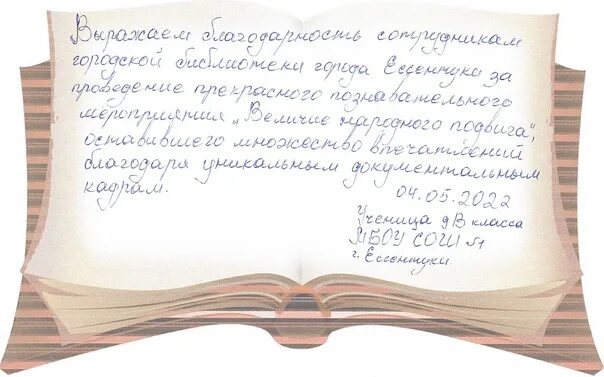 Выражаем благодарность сотрудникам
городской библиотеки города Ессентуки за
проведение прекрасного познавательного
мероприятия „Величие народного подвига",
оставившего множество впечатлений
благодаря уникальным документальным
кадрам.
04.05.2022
Ученица 9В класса
МБОУ СОШ №1
г. Ессентуки.